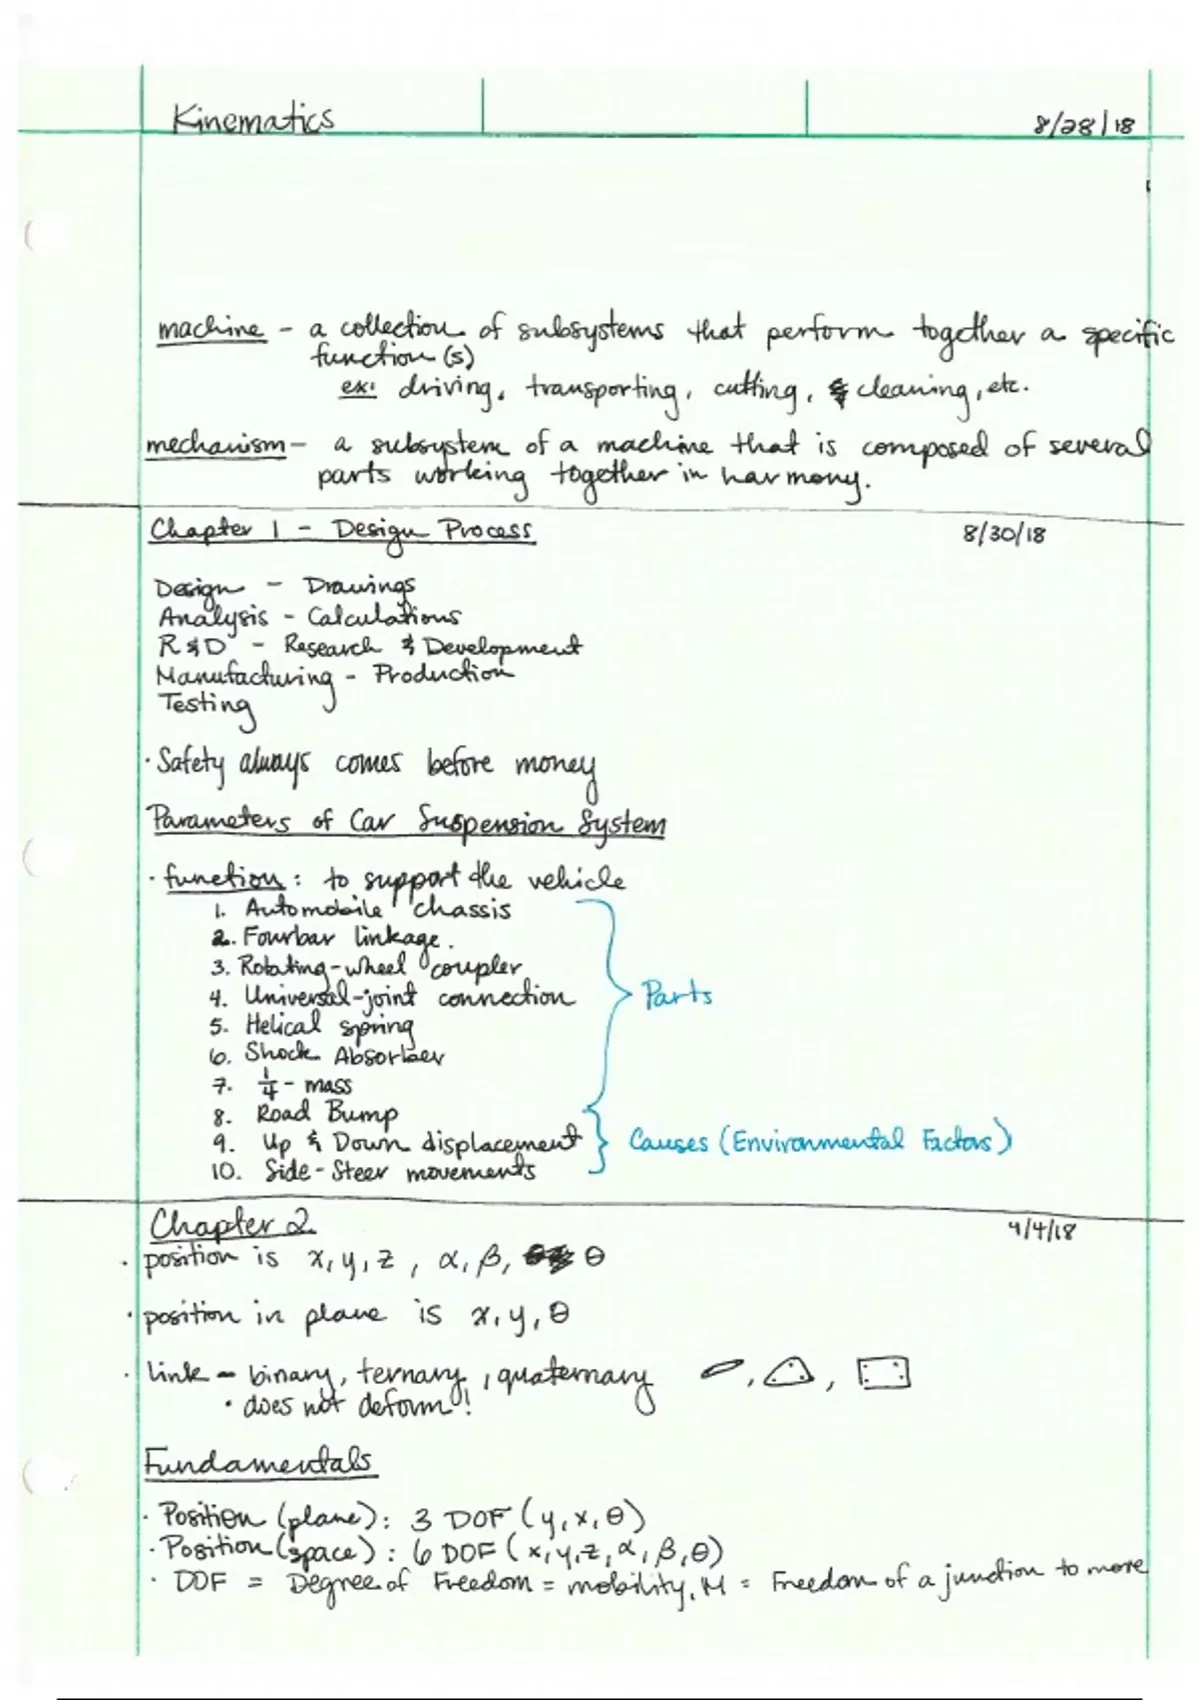 Kinematics 8/28/18
machine - a collection of subsystems that perform together a specific
function(s)
ex: driving, transporting, cutting, & cleaning, etc.
mechanism - a subsystem of a machine that is composed of several
parts working together in harmony.
Chapter 1 - Design Process 8/30/18
Design - Drawings
Analysis - Calculations
R&D - Research & Development
Manufacturing - Production
Testing
· Safety always comes before money
Parameters of Car Suspension System
· function: to support the vehicle
1. Automobile chassis
2. Fourbar linkage.
3. Rotating-wheel coupler
4. Universal-joint connection
5. Helical spring
6. Shock Absorber
7. 1/4 - mass
8. Road Bump
9. Up & Down displacement
10. Side-Steer movements
Parts
Causes (Environmental Factors)
Chapter 2 4/4/18
· position is x, y, z, α, β, θ
· position in plane is x, y, θ
· link - binary, ternary, quaternary
· does not deform!
Fundamentals
· Position (plane): 3 DOF (y, x, θ)
· Position (space): 6 DOF (x, y, z, α, β, θ)
· DOF = Degree of Freedom = mobility, M = Freedom of a junction to more